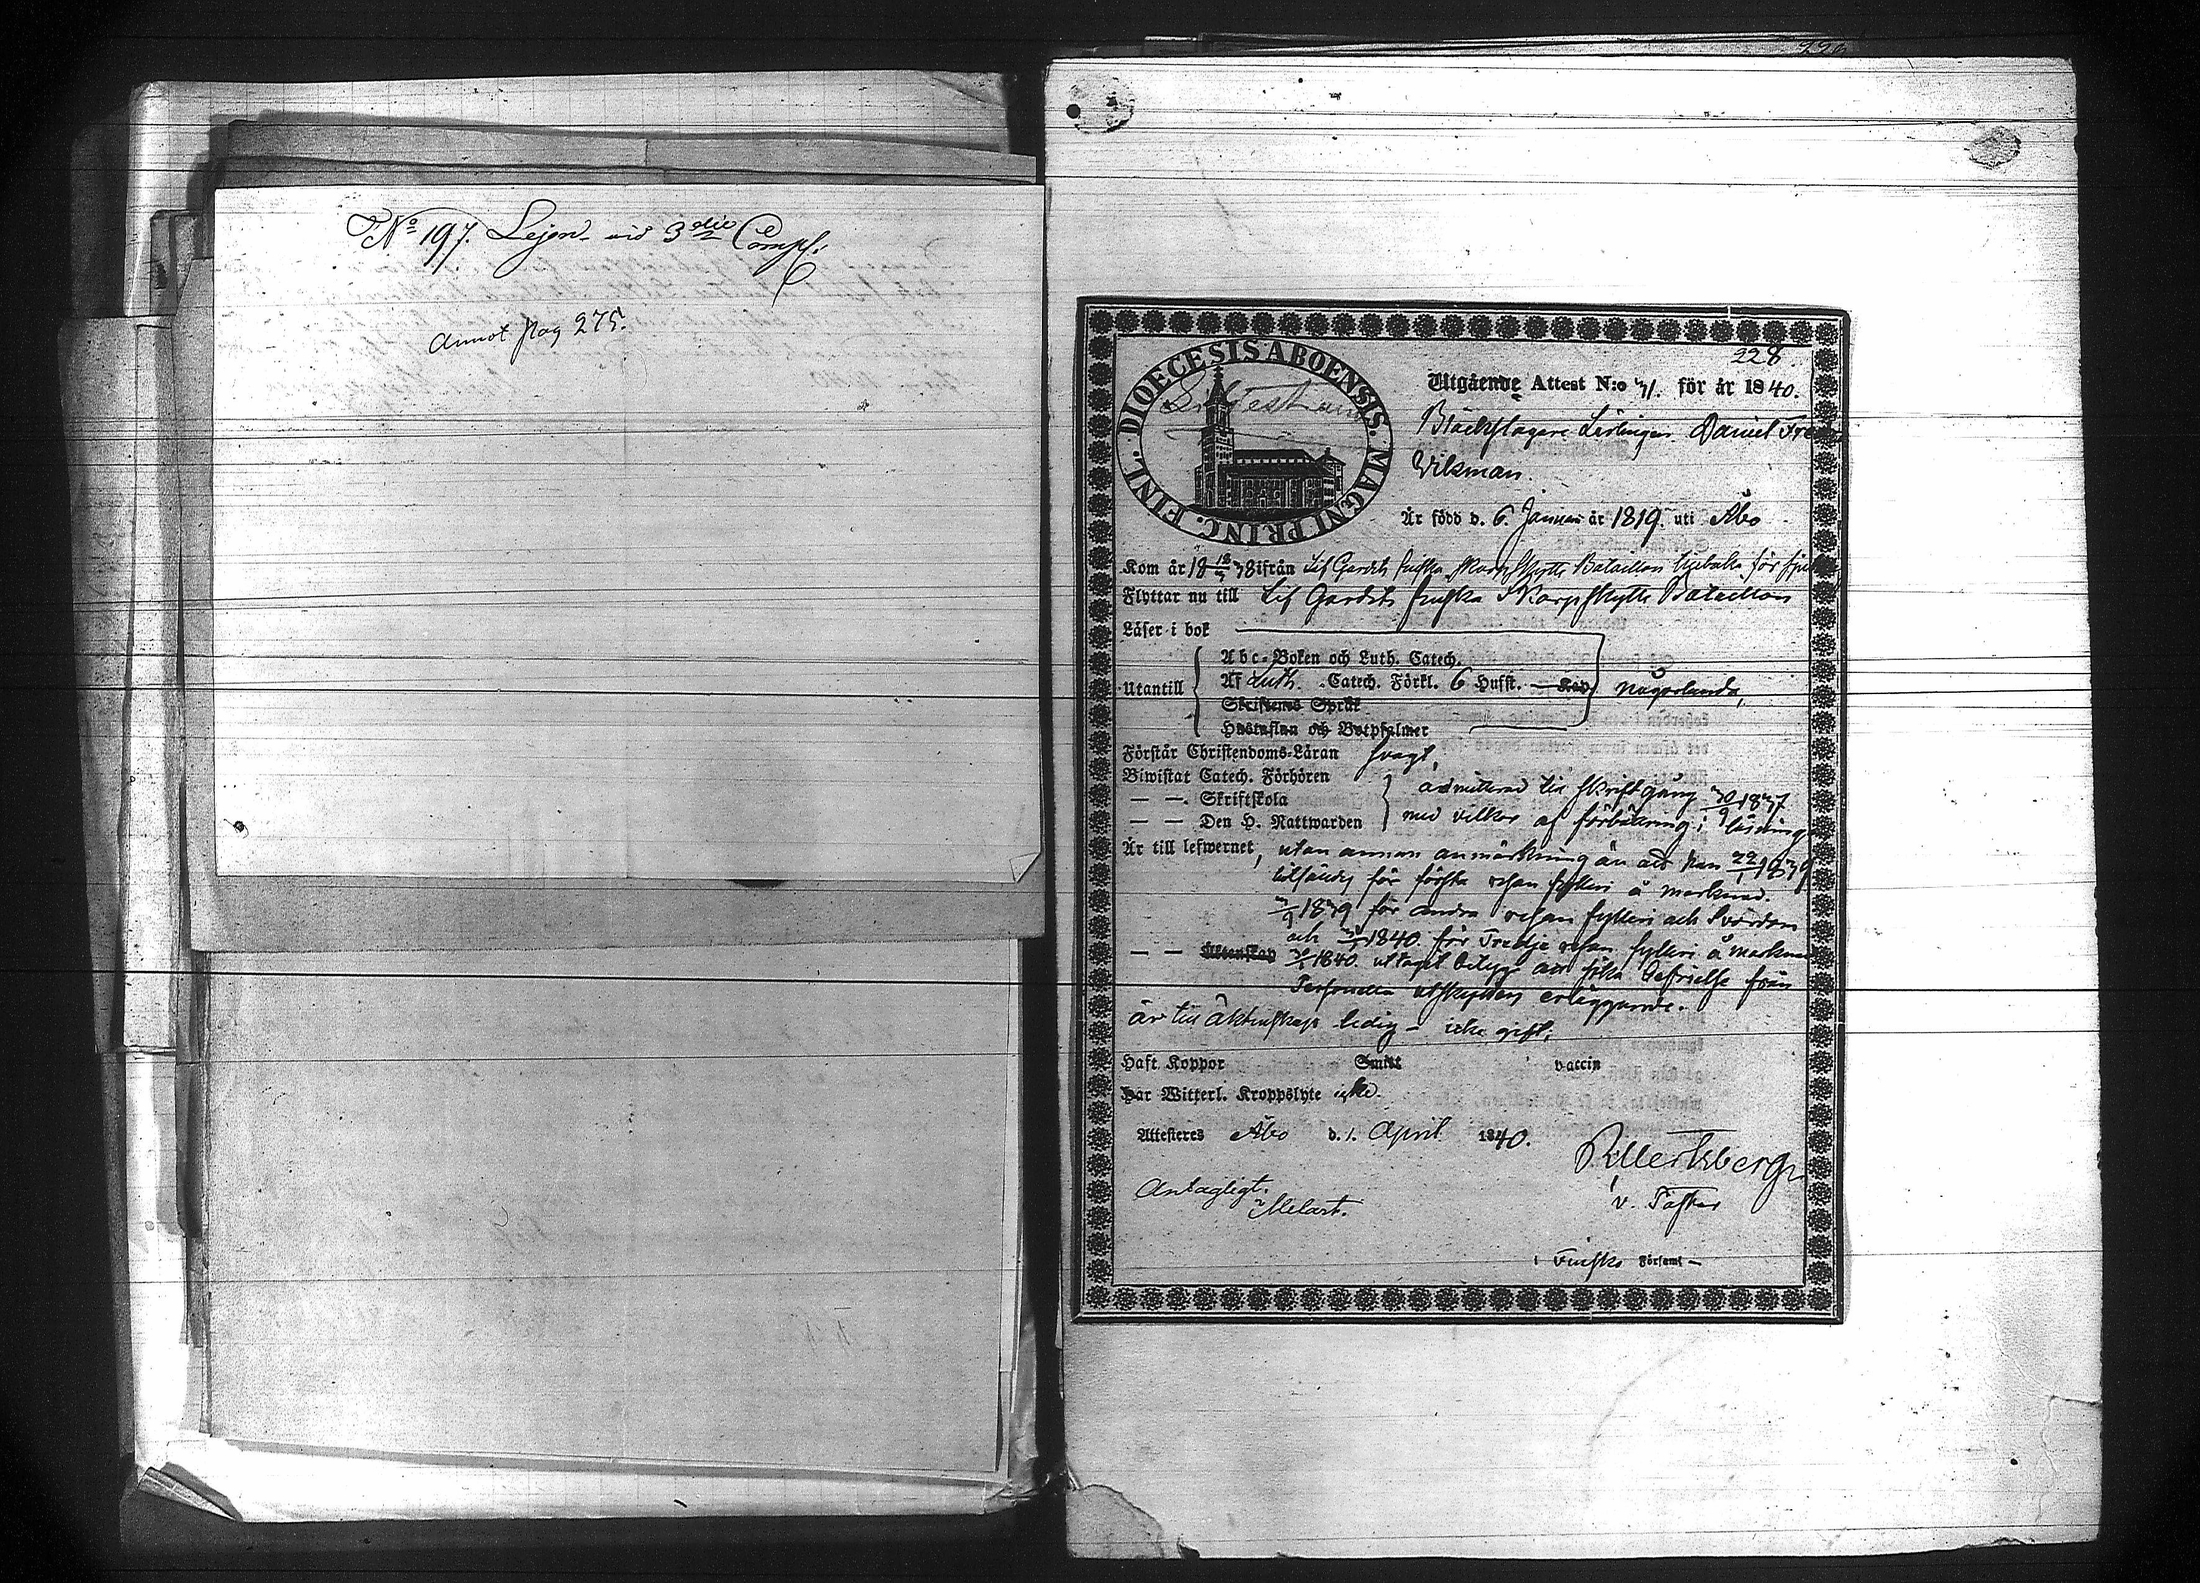 No 197. Lejon vid 3die Comp:
Annot pag 275.
228.
DIOECESIS ABOENSIS. MAGNI PRINC. FINL.
Utgående Attest N:o 71. för år 1840.
Bläckslagare Lärlingen Daniel
Vikman.
Är född d. 6 Januari år 1819. uti Åbo
Kom år 18 38 ifrån Lif Gardets finska skarpskytte Bataillon tillbaka för
Flyttar nu till Lif Gardets finska Skarpskytte Bataillon
Läser i bok
Utantill
Abc-Boken och Luth. Catech.
Af Luth. Catech. Förkl. 6 Hufst. — Kap någorlunda,
Skriftenes Språk
Hustaflan och Botpsalmer
Förstår Christendoms-Läran svagt,
Biwistat Catech. Förhören
— — Skriftskola
— — Den H. Nattwarden
admitterad till skriftgång 30/9 1837
med vilkor af förbättring i läsning
Är till lefwernet, utan annan anmärkning än att han 22/1 1839
för första resan fylleri å marknad.
1839 för andra resan fylleri och Svordom
och 1840. för Tredje resan fylleri å marknad
— — Äktenskap 1840. uttaget betyg att söka befrielse från
utskylders erläggande.
är till äktenskap ledig – icke gift.
Haft Koppor Smitt vaccin
Har Witterl. Kroppslyte icke.
Attesteras Åbo d. 1. April 1840.
v. Pastor
Antagligt.
Melart.
i Finska Församl –